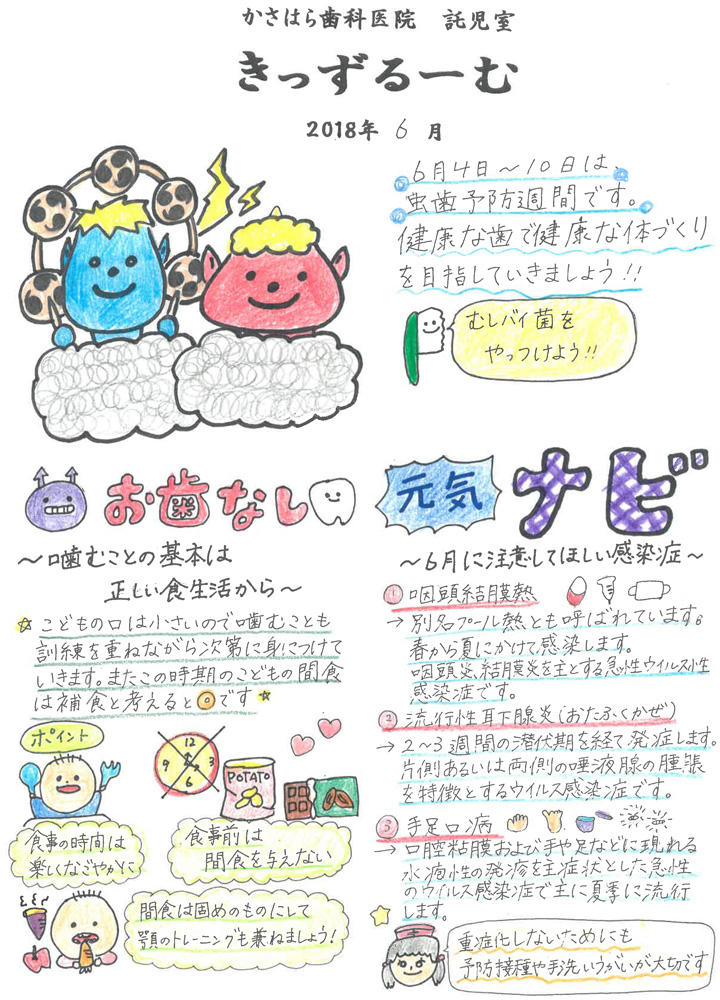 かさはら歯科医院 託児室
きっずるーむ
2018年 6 月
6月4日～10日は、
虫歯予防週間です。
健康な歯で健康な体づくり
を目指していきましょう!!
むしバイ菌を
やっつけよう!!
お歯なし
～噛むことの基本は
正しい食生活から～
☆こどもの口は小さいので噛むことも
訓練を重ねながら次第に身につけて
いきます。またこの時期のこどもの間食
は補食と考えると◎です☆
ポイント
12
3
6
9
POTATO
食事の時間は
楽しくなごやかに
食事前は
間食を与えない
間食は固めのものにして
顎のトレーニングも兼ねましょう!
元気ナビ
～6月に注意してほしい感染症～
① 咽頭結膜熱
→別名プール熱とも呼ばれています。
春から夏にかけて感染します。
咽頭炎、結膜炎を主とする急性ウイルス性
感染症です。
② 流行性耳下腺炎(おたふくかぜ)
→2～3週間の潜伏期を経て発症します。
片側あるいは両側の唾液腺の腫脹
を特徴とするウイルス感染症です。
③ 手足口病
→口腔粘膜および手や足などに現れる
水疱性の発疹を主症状とした急性
のウイルス感染症で主に夏季に流行
します。
重症化しないためにも
予防接種や手洗いうがいが大切です